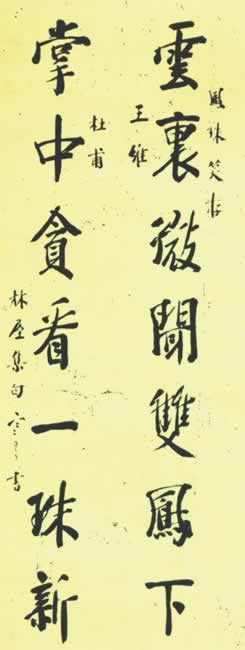 鳳珠笑存
雲裏微聞雙鳳下
王維
掌中貪看一珠新
杜甫
林屋集句寒雲書